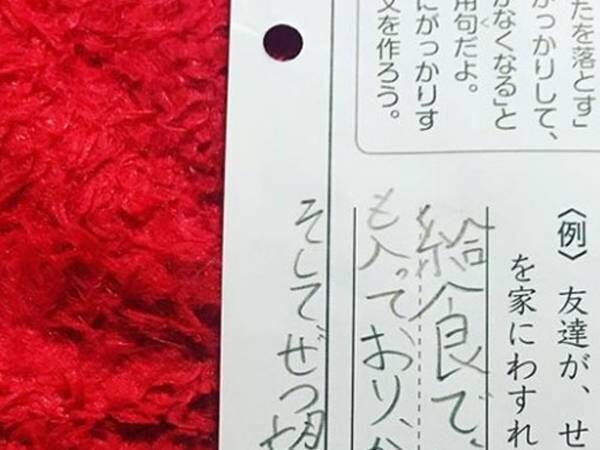 たを落とす」
がっかりして、
がなくなる」と
用句だよ。
にがっかりす
文を作ろう。
〈例〉友達が、せ
を家にわすれ
給食で、
も入っており、
そしてぜつ